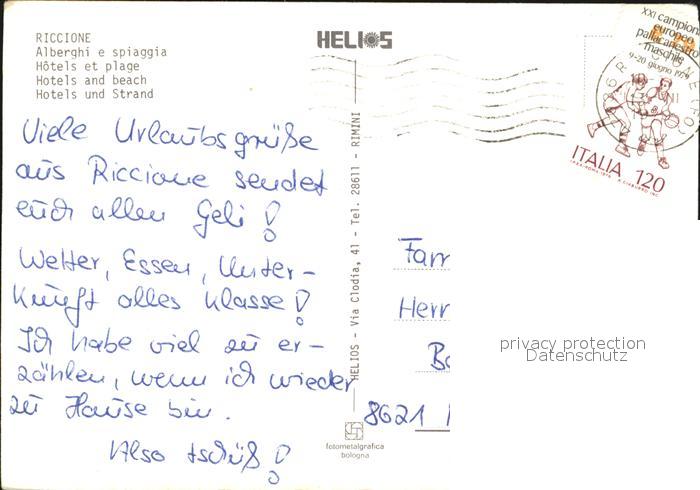 RICCIONE
Alberghi e spiaggia
Hôtels et plage
Hotels and beach
Hotels und Strand
HELIOS
XXI campion
europeo
pallacanestro
maschile
9-20 giugno 1979
ITALIA 120
Viele Urlaubsgrüße
aus Riccione sendet
euch allen Geli!
Wetter, Essen, Unter-
kunft alles Klasse!
Ich habe viel zu er-
zählen, wenn ich wieder
zu Hause bin.
Also tschüß!
HELIOS - Via Clodia, 41 - Tel. 28611 - RIMINI
fotometalgrafica
bologna
Fam
Herr
8621
privacy protection
Datenschutz